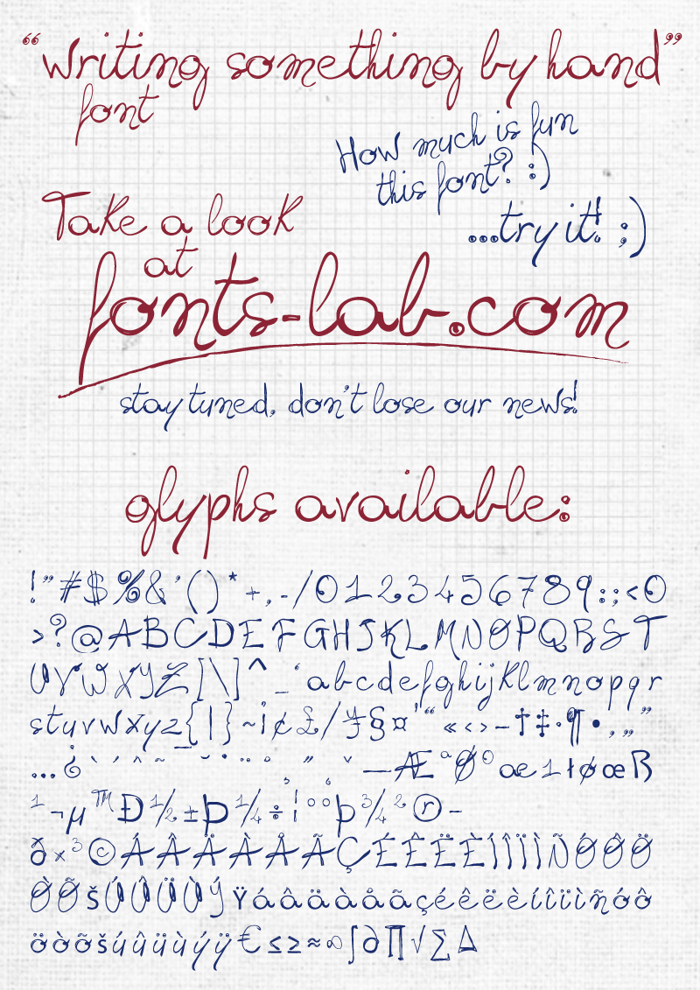 “writing something by hand”
font
How much is fun
this font? :)
...try it! ;)
Take a look
at
fonts-lab.com
stay tuned, don't lose our news!
glyphs available:
!"#$%&'()*+,-/0123456789:;<O
>?@ABCDEFGHIJKLMNOPQRST
UVWXYZ[\]^_`abcdefghijklmnopqr
stuvwxyz{|}~¡¢£/¥§¤'“«‹›–†‡·¶•‚„”
…¿`´ˆ˜¯˘˙¨°¸˝˛ˇ—ÆªØºæıłøœß
¹¬µ™Ð½±Þ¼÷¦°°þ¾²®-
ð×³©ÁÂÄÀÅÃÇÉÊËÈÍÎÏÌÑÓÔÖ
ÒÕšÚÛÜÙÝŸáâäàåãçéêëèíîïìñóô
öòõšúûüùýÿ€≤≥≈∞∫∂∏√∑∆